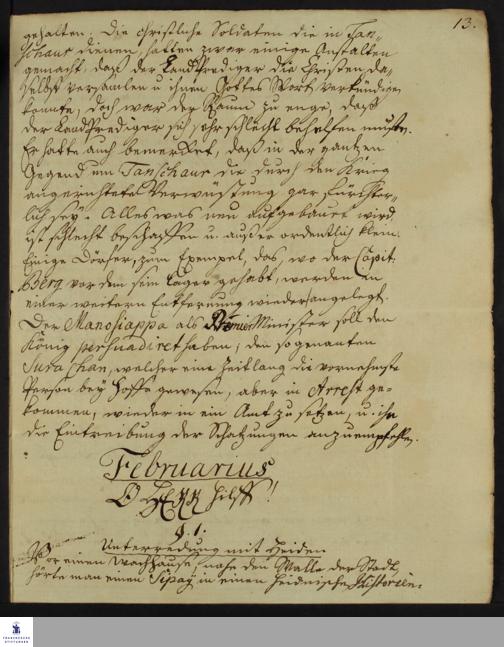 13.
gehalten. Die christliche Soldaten die in Tan-
schaur dienen, hatten zwar einige Anstalten
gemacht, daß der LandPrediger die Christen da-
selbst versamlen u. ihnen Gottes Wort verkündigen
konnte, doch war der Raum zu enge, daß
der LandPrediger sich sehr schlecht behelfen muste.
Er hatte auch bemerket, daß in der gantzen
Gegend um Tanschaur die durch den Krieg
angerichtete Verwüstung gar fürchter-
lich sey. Alles was neu aufgebauet wird
ist schlecht beschaffen u. ausser ordentlich klein.
Einige Dörfer, zum Exempel, das, wo der Capit.
Berg vor dem sein Lager gehabt, werden in
einer weitern Entfernung wieder angelegt.
Der Manosiappa als PremierMinister soll den
König persuadiret haben, den so genanten
Surachan, welcher eine Zeitlang die vornehmste
Person bey Hoffe gewesen, aber in Arrest ge-
kommen, wieder in ein Amt zu setzen, u. ihm
die Eintreibung der Schatzungen anzuempfehlen.
Februarius
O HERR hilff!
§. 1.
Unterredung mit Heiden
Vor einem Wachhause, nahe den Walle der Stadt,
hörte man einen Sipay in einen heidnischen Historien-
FRANCKESCHE
STIFTUNGEN